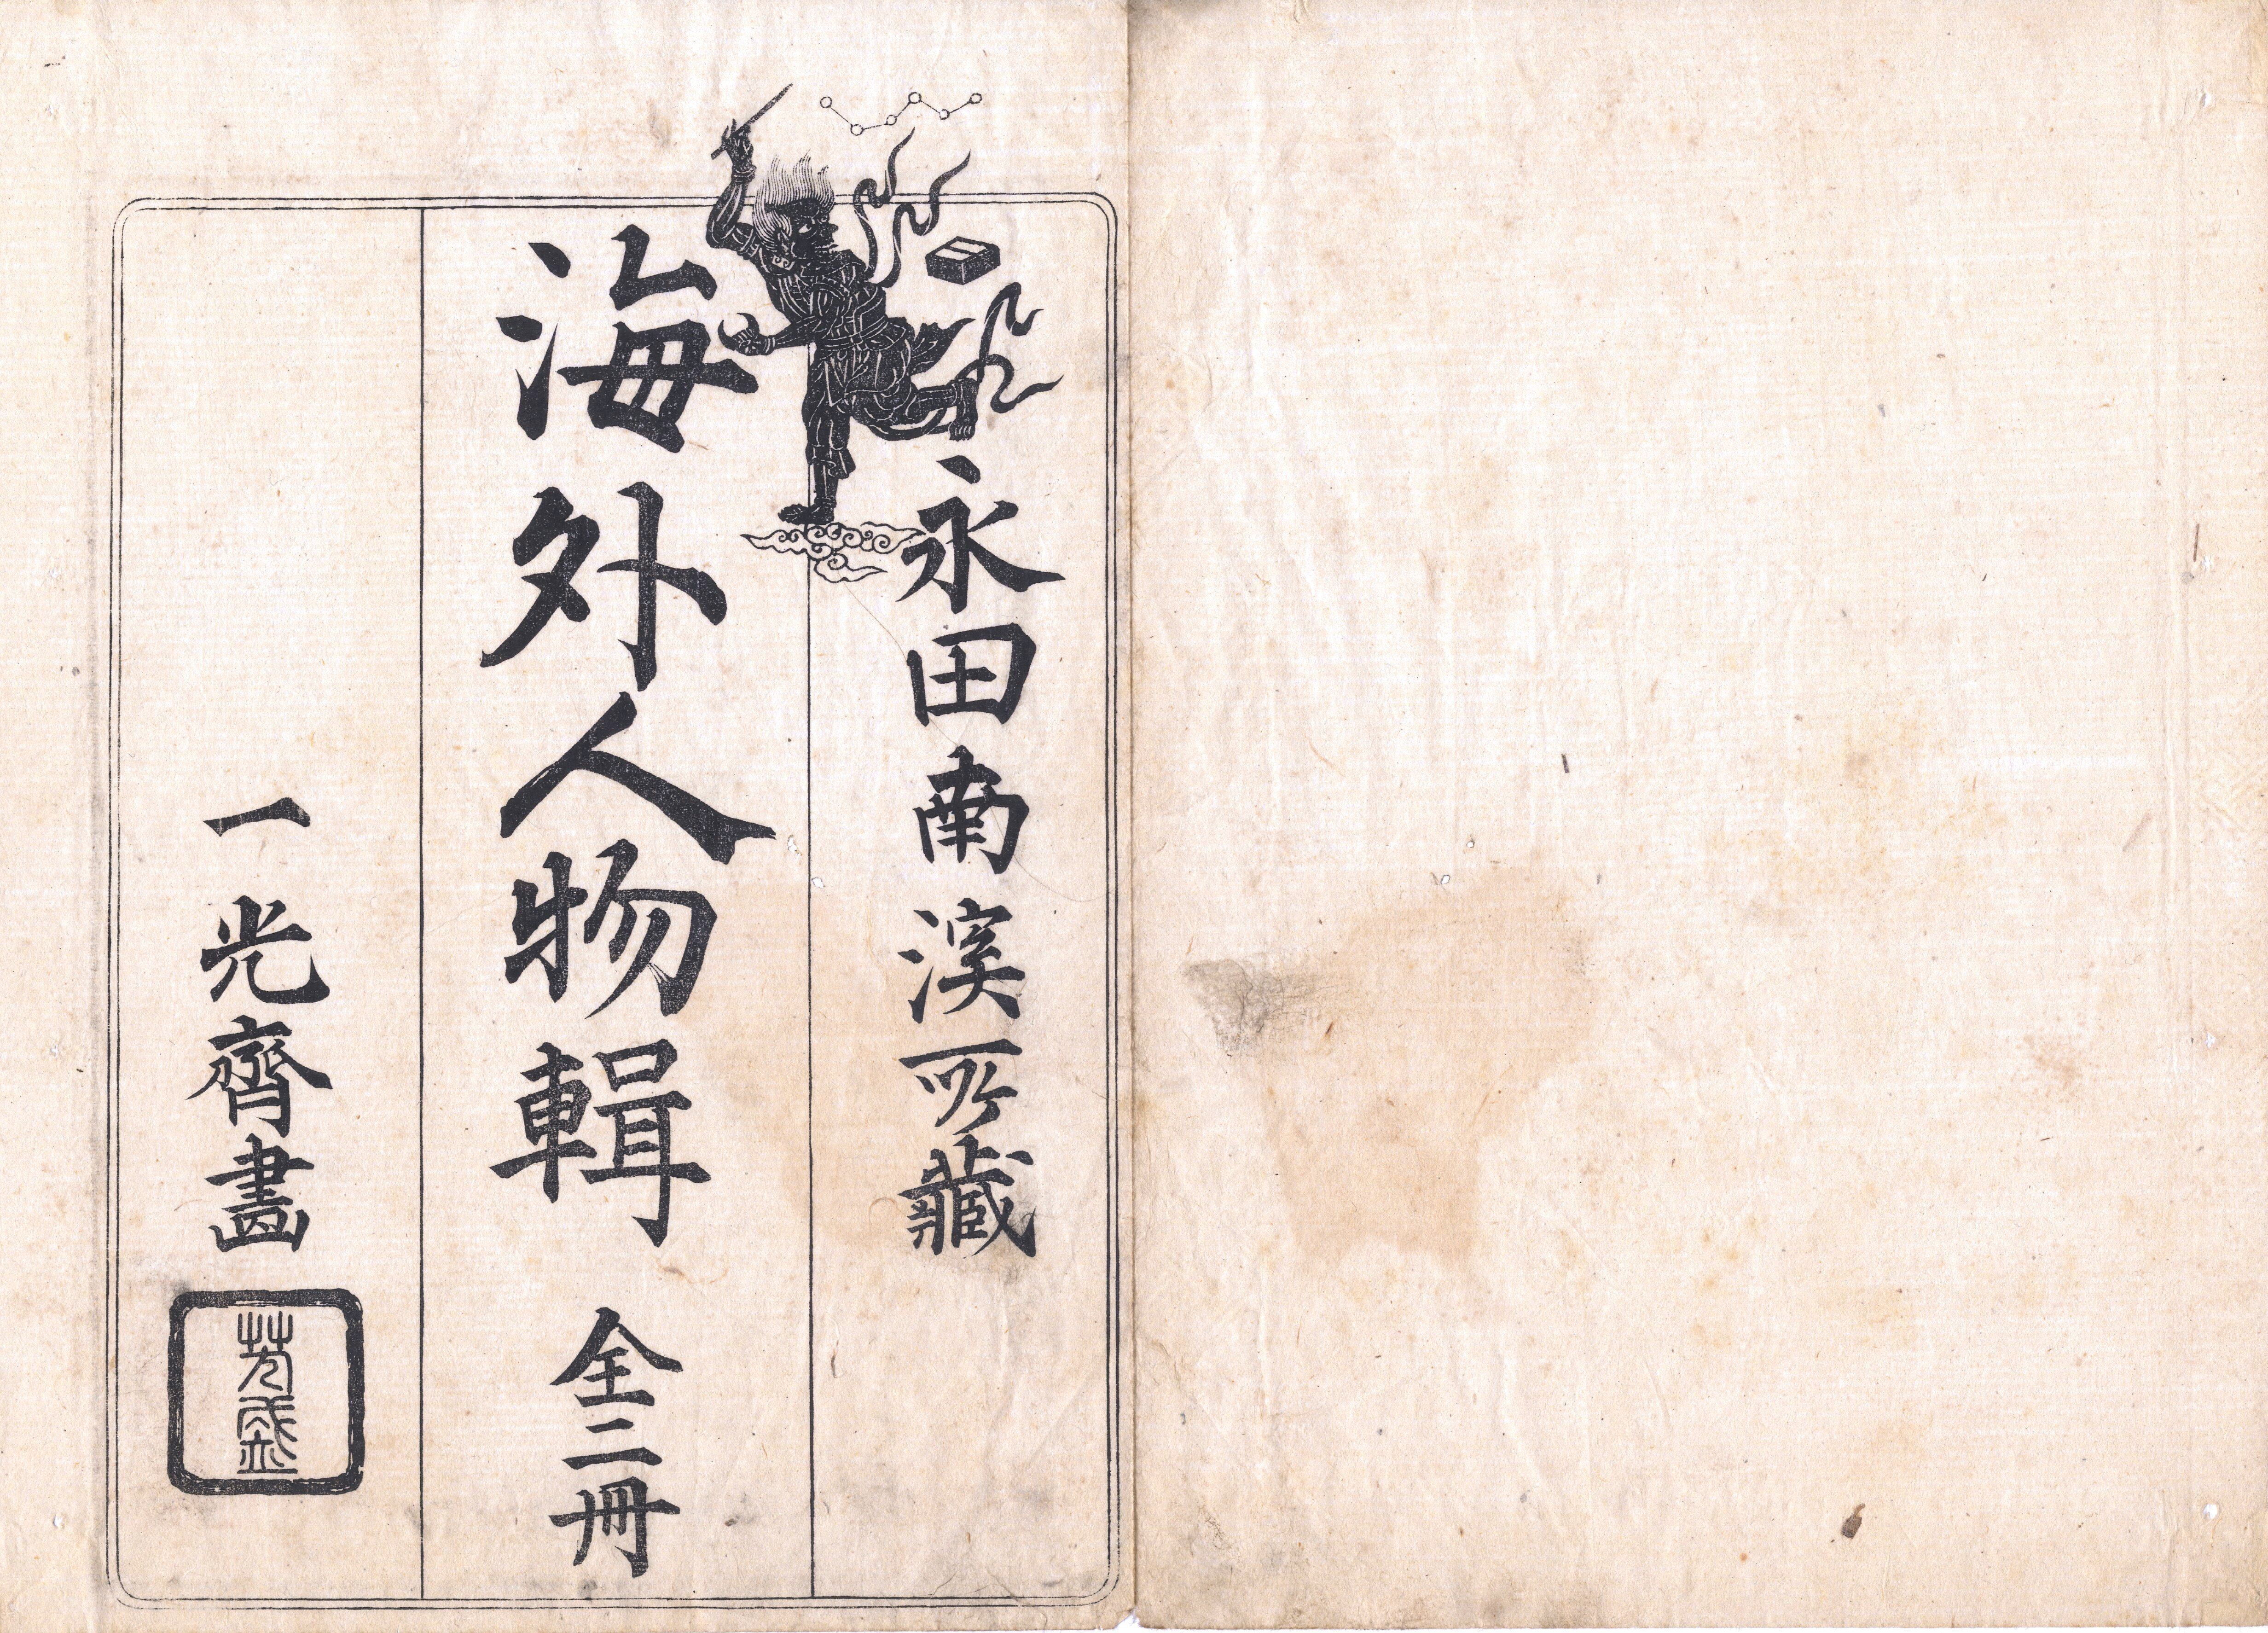 永田南溪所藏
海外人物輯 全二冊
一光齊畫
芳盛